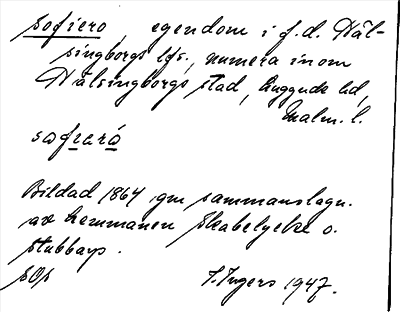 Sofiero, egendom i f. d. Häl-
singborgs lfs., numera inom
Hälsingborgs stad, Luggude hd,
Malm. l.
sofıeró
Bildad 1864 gm sammanslagn.
av hemmanen Skabelycke o.
Stubbarp.
SOs I. Ingers 1947.